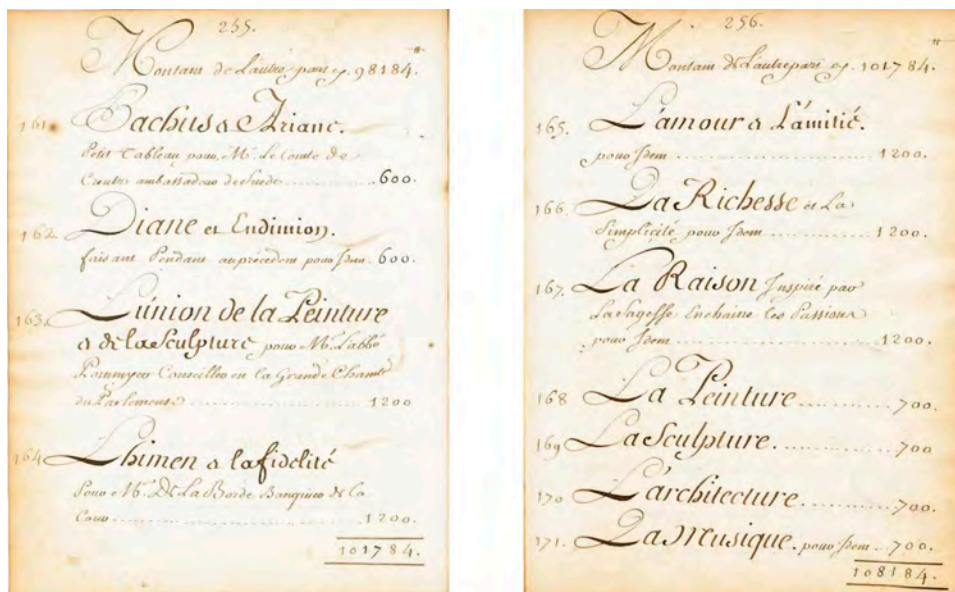 255.
Montant de L'autre part cy. 98184.
161. Bachus & Ariane.
Petit Tableau pour M. Le Comte de
Creutz ambassadeur de Suede 600.
162. Diane et Endimion.
faisant Pendant au précedent pour Idem. 600.
163. L'union de la Peinture
& de la Sculpture pour M. L'abbé
Conseiller en la Grande Chambre
du Parlement 1200
164 L'himen & la fidelité
Pour M. De La Borde Banquier de la
Cour 1200.
101784.
256.
Montant de L'autre part cy. 101784.
165. L'amour & L'amitié.
pour Idem 1200.
166. La Richesse et La
Simplicité pour Idem 1200.
167. La Raison Inspiré par
La Sagesse Enchaine les Passions
pour Idem 1200.
168 La Peinture 700.
169 La Sculpture. 700
170 L'architecture 700.
171. La Musique. pour Idem 700.
108184.